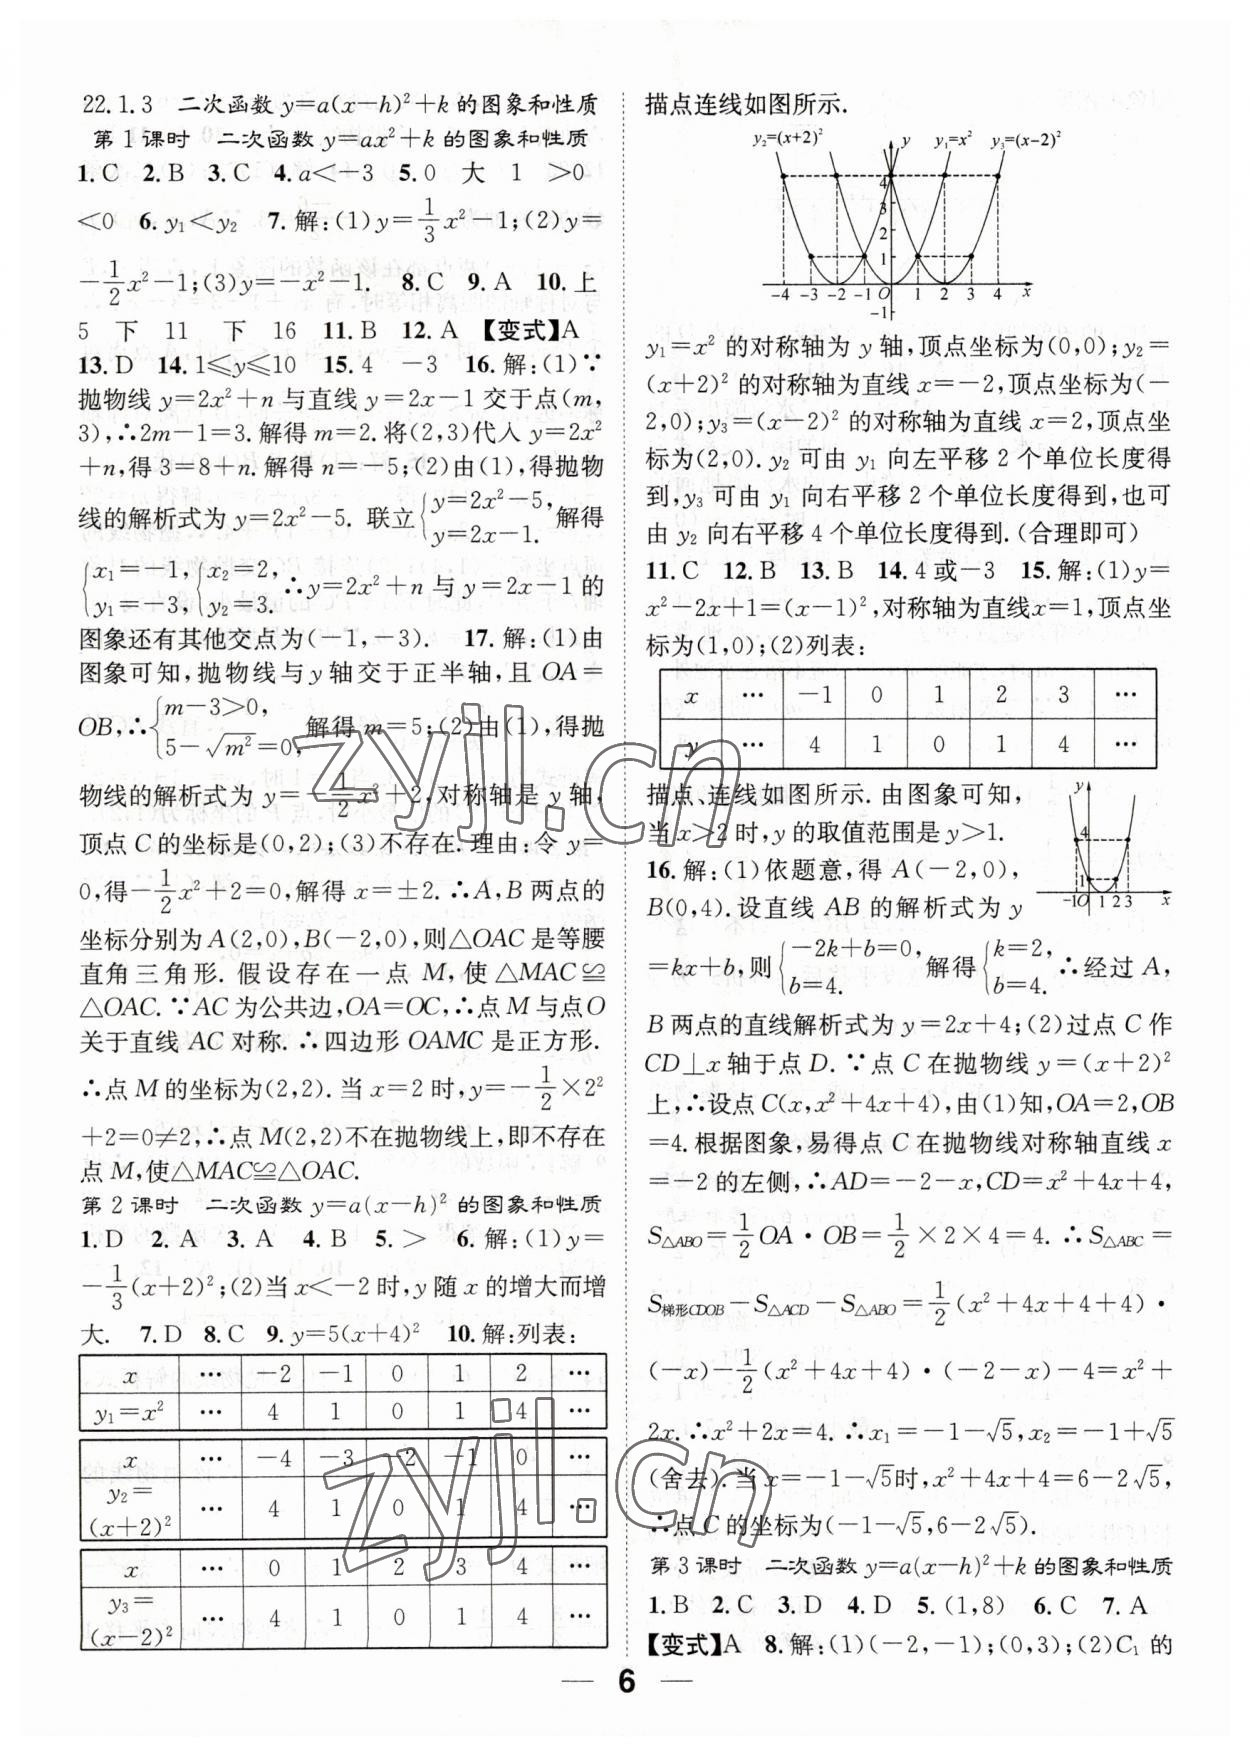 22.1.3 二次函数 y=a(x-h)²+k 的图象和性质
第1课时 二次函数 y=ax²+k 的图象和性质
1. C 2. B 3. C 4. a<-3 5. 0 大 1 >0
<0 6. y₁<y₂ 7. 解:(1)y=1/3x²-1;(2)y=
-1/2x²-1;(3)y=-x²-1. 8. C 9. A 10. 上
5 下 11 下 16 11. B 12. A 【变式】A
13. D 14. 1≤y≤10 15. 4 -3 16. 解:(1)∵
抛物线 y=2x²+n 与直线 y=2x-1 交于点(m,
3),∴2m-1=3. 解得 m=2. 将(2,3)代入 y=2x²
+n,得 3=8+n. 解得 n=-5;(2)由(1),得抛物
线的解析式为 y=2x²-5. 联立{y=2x²-5, y=2x-1. 解得
{x₁=-1, y₁=-3, {x₂=2, y₂=3. ∴y=2x²+n 与 y=2x-1 的
图象还有其他交点为(-1,-3). 17. 解:(1)由
图象可知,抛物线与y轴交于正半轴,且 OA=
OB,∴{m-3>0, 5-√m²=0, 解得 m=5;(2)由(1),得抛
物线的解析式为 y=-1/2x²+2,对称轴是 y 轴,
顶点 C 的坐标是(0,2);(3)不存在. 理由:令 y=
0,得-1/2x²+2=0,解得 x=±2. ∴A,B 两点的
坐标分别为 A(2,0),B(-2,0),则△OAC 是等腰
直角三角形. 假设存在一点 M,使 △MAC≌
△OAC. ∵AC 为公共边,OA=OC,∴点 M 与点O
关于直线 AC 对称. ∴四边形 OAMC 是正方形.
∴点 M 的坐标为(2,2). 当 x=2 时,y=-1/2×2²
+2=0≠2,∴点 M(2,2)不在抛物线上,即不存在
点 M,使△MAC≌△OAC.
第2课时 二次函数 y=a(x-h)² 的图象和性质
1. D 2. A 3. A 4. B 5. > 6. 解:(1)y=
-1/3(x+2)²;(2)当 x<-2 时,y 随 x 的增大而增
大. 7. D 8. C 9. y=5(x+4)² 10. 解:列表:
x … -2 -1 0 1 2 …
y₁=x² … 4 1 0 1 4 …
x … -4 -3 -2 -1 0 …
y₂=
(x+2)² … 4 1 0 1 4 …
x … 0 1 2 3 4 …
y₃=
(x-2)² … 4 1 0 1 4 …
描点连线如图所示.
y₂=(x+2)² y y₁=x² y₃=(x-2)²
4
2
1
-4 -3 -2 -1 O 1 2 3 4 x
-1
y₁=x² 的对称轴为 y 轴,顶点坐标为(0,0);y₂=
(x+2)² 的对称轴为直线 x=-2,顶点坐标为(-
2,0);y₃=(x-2)² 的对称轴为直线 x=2,顶点坐
标为(2,0). y₂ 可由 y₁ 向左平移 2 个单位长度得
到,y₃ 可由 y₁ 向右平移 2 个单位长度得到,也可
由 y₂ 向右平移 4 个单位长度得到. (合理即可)
11. C 12. B 13. B 14. 4 或-3 15. 解:(1)y=
x²-2x+1=(x-1)²,对称轴为直线x=1,顶点坐
标为(1,0);(2)列表:
x … -1 0 1 2 3 …
y … 4 1 0 1 4 …
描点、连线如图所示. 由图象可知,
当 x>2 时,y 的取值范围是 y>1.
y
4
1
-1 O 1 2 3 x
16. 解:(1)依题意,得 A(-2,0),
B(0,4). 设直线 AB 的解析式为 y
=kx+b,则{-2k+b=0, b=4. 解得{k=2, b=4. ∴经过 A,
B 两点的直线解析式为 y=2x+4;(2)过点 C 作
CD⊥x 轴于点 D. ∵点 C 在抛物线 y=(x+2)²
上,∴设点 C(x,x²+4x+4),由(1)知,OA=2,OB
=4. 根据图象,易得点 C 在抛物线对称轴直线 x=
-2 的左侧,∴AD=-2-x,CD=x²+4x+4,
S△ABO=1/2OA·OB=1/2×2×4=4. ∴S△ABC=
S梯形CDOB-S△ACD-S△ABO=1/2(x²+4x+4+4)·
(-x)-1/2(x²+4x+4)·(-2-x)-4=x²+
2x. ∴x²+2x=4. ∴x₁=-1-√5,x₂=-1+√5
(舍去). 当 x=-1-√5时,x²+4x+4=6-2√5,
∴点 C 的坐标为(-1-√5,6-2√5).
第3课时 二次函数 y=a(x-h)²+k 的图象和性质
1. B 2. C 3. D 4. D 5. (1,8) 6. C 7. A
【变式】A 8. 解:(1)(-2,-1);(0,3);(2)C₁ 的
6
zyjl.cn
zyjl.cn